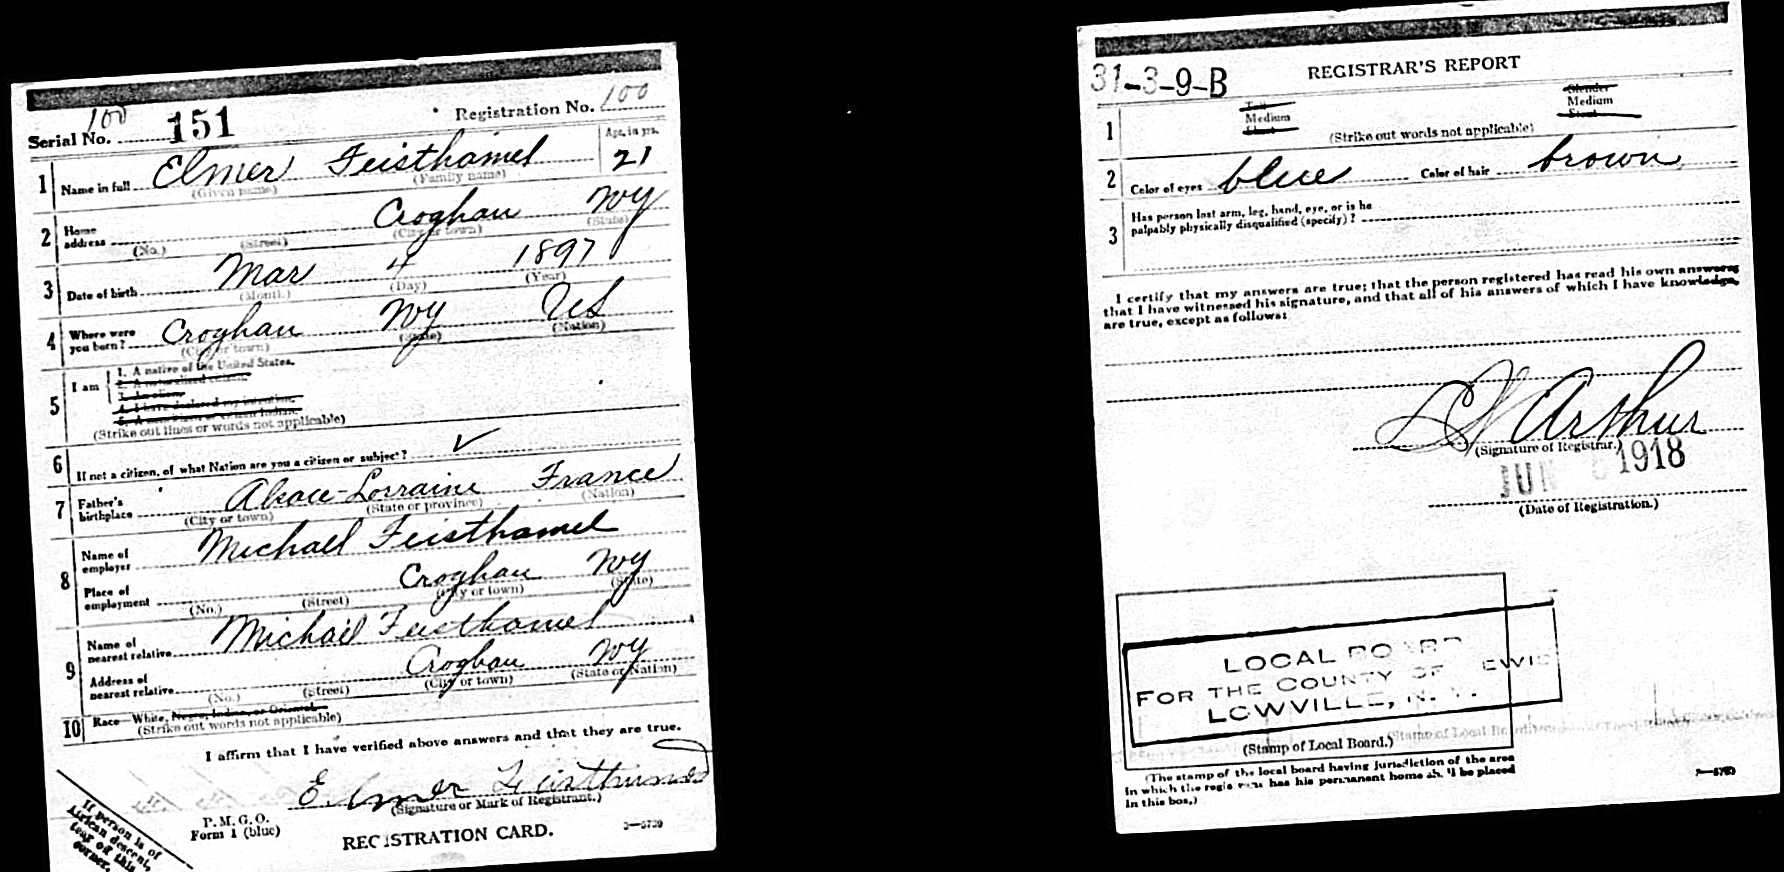 100
Serial No. 151
Registration No. 100
1 Name in full Elmer Feisthamel
(Given name) (Family name)
Age, in yrs.
21
2 Home address Croghan NY
(No.) (Street) (City or town) (State)
3 Date of birth Mar 4 1897
(Month) (Day) (Year)
4 Where were you born? Croghan NY US
(City or town) (State) (Nation)
5 I am
1. A native of the United States.
2. A naturalized citizen.
3. An alien.
4. I have declared my intention.
5. A
(Strike out lines or words not applicable)
6 If not a citizen, of what Nation are you a citizen or subject? ✓
7 Father's birthplace Alsace-Lorraine France
(City or town) (State or province) (Nation)
8 Name of employer Michael Feisthamel
Place of employment Croghan NY
(No.) (Street) (City or town) (State)
9 Name of nearest relative Michael Feisthamel
Address of nearest relative Croghan NY
(No.) (Street) (City or town) (State or Nation)
10 Race—White, Negro, Indian, or Oriental
(Strike out words not applicable)
I affirm that I have verified above answers and that they are true.
Elmer Feisthamel
(Signature or Mark of Registrant.)
P. M. G. O.
Form 1 (blue)
REGISTRATION CARD.
If person is of
African descent,
tear off this
corner.
31-3-9-B
REGISTRAR'S REPORT
1
Tall
Medium
Short
Slender
Medium
Stout
(Strike out words not applicable)
2 Color of eyes blue Color of hair brown
3 Has person lost arm, leg, hand, eye, or is he
palpably physically disqualified (specify)?
I certify that my answers are true; that the person registered has read his own answers;
that I have witnessed his signature, and that all of his answers of which I have knowledge,
are true, except as follows:
Arthur
(Signature of Registrar.)
JUN 1918
(Date of Registration.)
LOCAL BOARD
FOR THE COUNTY OF LEWIS
LOWVILLE, N. Y.
(Stamp of Local Board.)
(The stamp of the local board having jurisdiction of the area
in which the registrant has his permanent home shall be placed
in this box.)